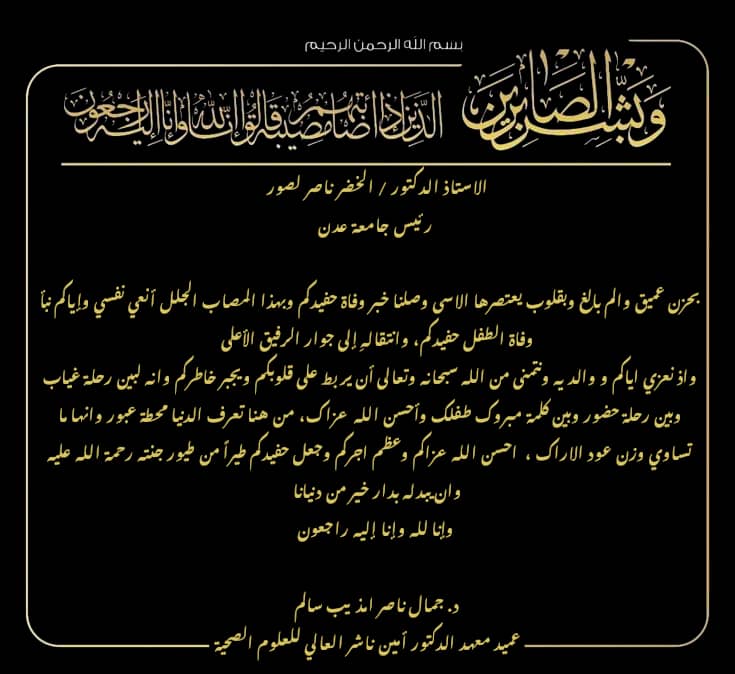 بسم الله الرحمن الرحيم
وبشر الصابرين
الذين إذا أصابتهم مصيبة قالوا إنا لله وإنا إليه راجعون
الاستاذ الدكتور / الخضر ناصر لصور
رئيس جامعة عدن
بحزن عميق والم بالغ وبقلوب يعتصرها الاسى وصلنا خبر وفاة حفيدكم وبهذا المصاب الجلل أنعي نفسي وإياكم نبأ
وفاة الطفل حفيدكم، وانتقاله إلى جوار الرفيق الأعلى
واذ نعزي اياكم و والديه ونتمنى من الله سبحانه وتعالى أن يربط على قلوبكم ويجبر خاطركم وانه لبين رحلة غياب
وبين رحلة حضور وبين كلمة مبروك طفلك وأحسن الله عزاك، من هنا تعرف الدنيا محطة عبور وانها ما
تساوي وزن عود الاراك ، احسن الله عزاكم وعظم اجركم وجعل حفيدكم طيراً من طيور جنته رحمة الله عليه
وان يبدله بدار خير من دنيانا
وإنا لله وإنا إليه راجعون
د. جمال ناصر امذيب سالم
عميد معهد الدكتور أمين ناشر العالي للعلوم الصحية